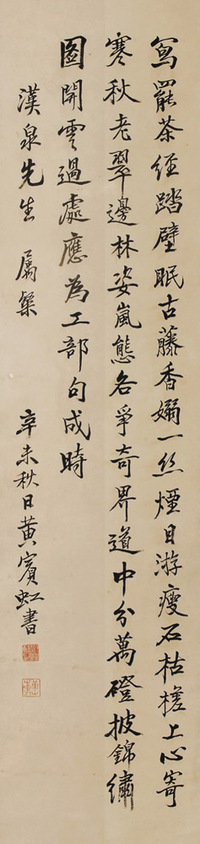 寫罷茶經踏壁眠古藤香嫋一絲煙目游瘦石枯槎上心寄
寒秋老翠邊林姿嵐態各爭奇界道中分萬磴披錦繡
圖開雲過處應為工部句成時
漢泉先生 屬粲
辛未秋日黃賓虹書